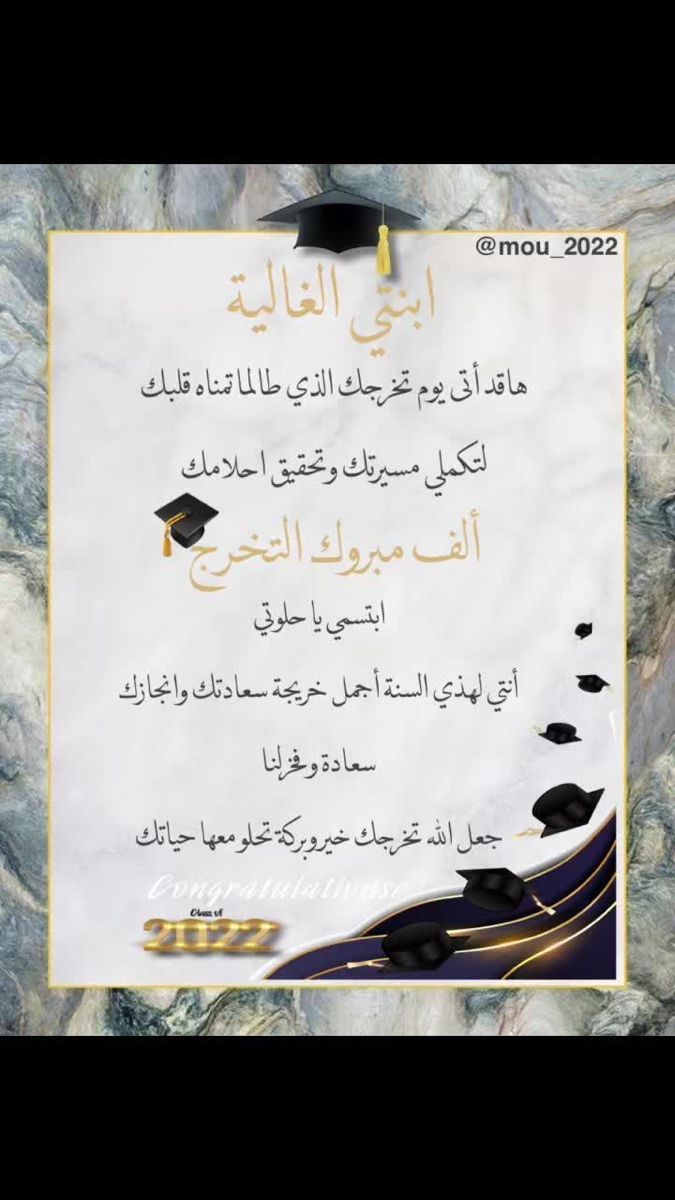 @mou_2022
ابنتي الغالية
هاقد أتى يوم تخرجك الذي طالما تمناه قلبك
لتكملي مسيرتك وتحقيق احلامك
ألف مبروك التخرج
ابتسمي يا حلوتي
أنتي لهذي السنة أجمل خريجة سعادتك وانجازك
سعادة وفخر لنا
جعل الله تخرجك خير وبركة تحلو معها حياتك
Class of
2022